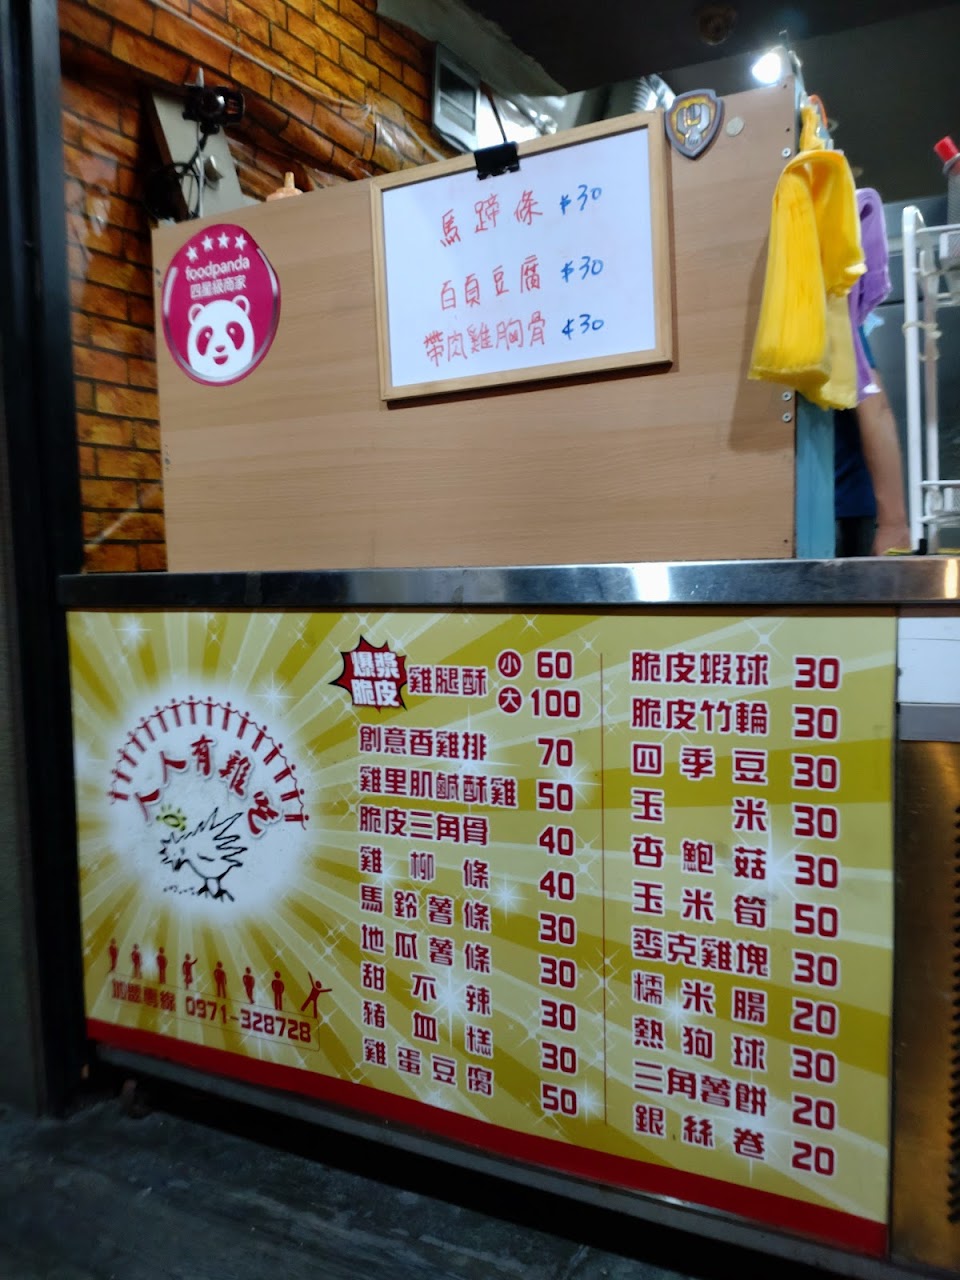 foodpanda
四星級商家
馬蹄條 $30
百頁豆腐 $30
帶肉雞胸骨 $30
人人有雞吃
加盟專線 0971-328728
爆漿脆皮 雞腿酥 小 60
大 100
創意香雞排 70
雞里肌鹹酥雞 50
脆皮三角骨 40
雞柳條 40
馬鈴薯條 30
地瓜薯條 30
甜不辣 30
豬血糕 30
雞蛋豆腐 50
脆皮蝦球 30
脆皮竹輪 30
四季豆 30
玉米 30
杏鮑菇 30
玉米筍 50
麥克雞塊 30
糯米腸 20
熱狗球 30
三角薯餅 20
銀絲卷 20